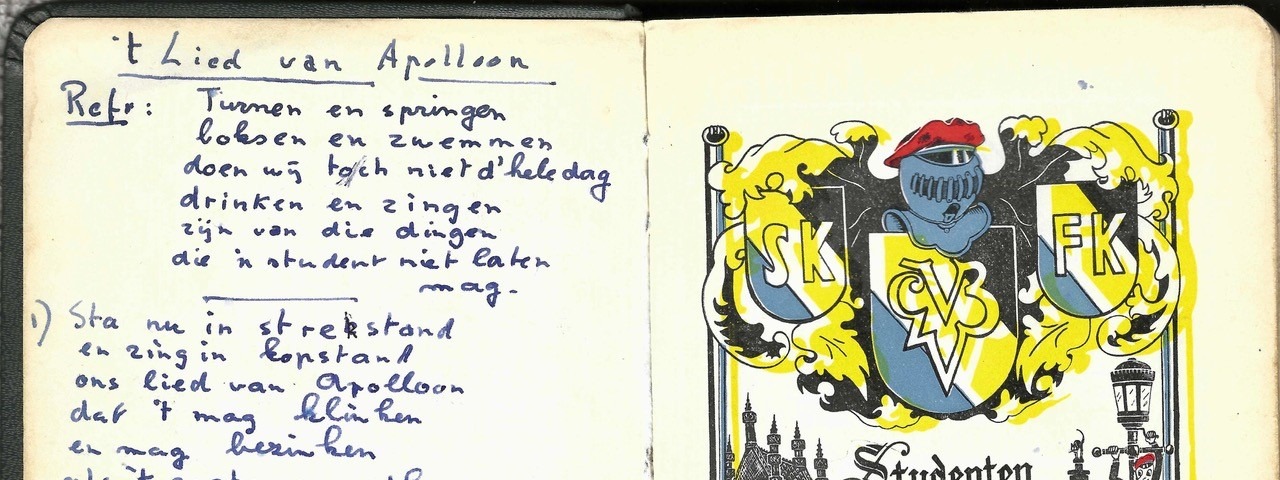 't Lied van Apolloon
Refr: Turnen en springen
boksen en zwemmen
doen wij toch niet d'hele dag
drinken en zingen
zijn van die dingen
die 'n student niet laten
mag.
1) Sta nu in strekstand
en zing in kopstand
ons lied van Apolloon
dat 't mag klinken
en mag bezinken
SK
FK
Studenten